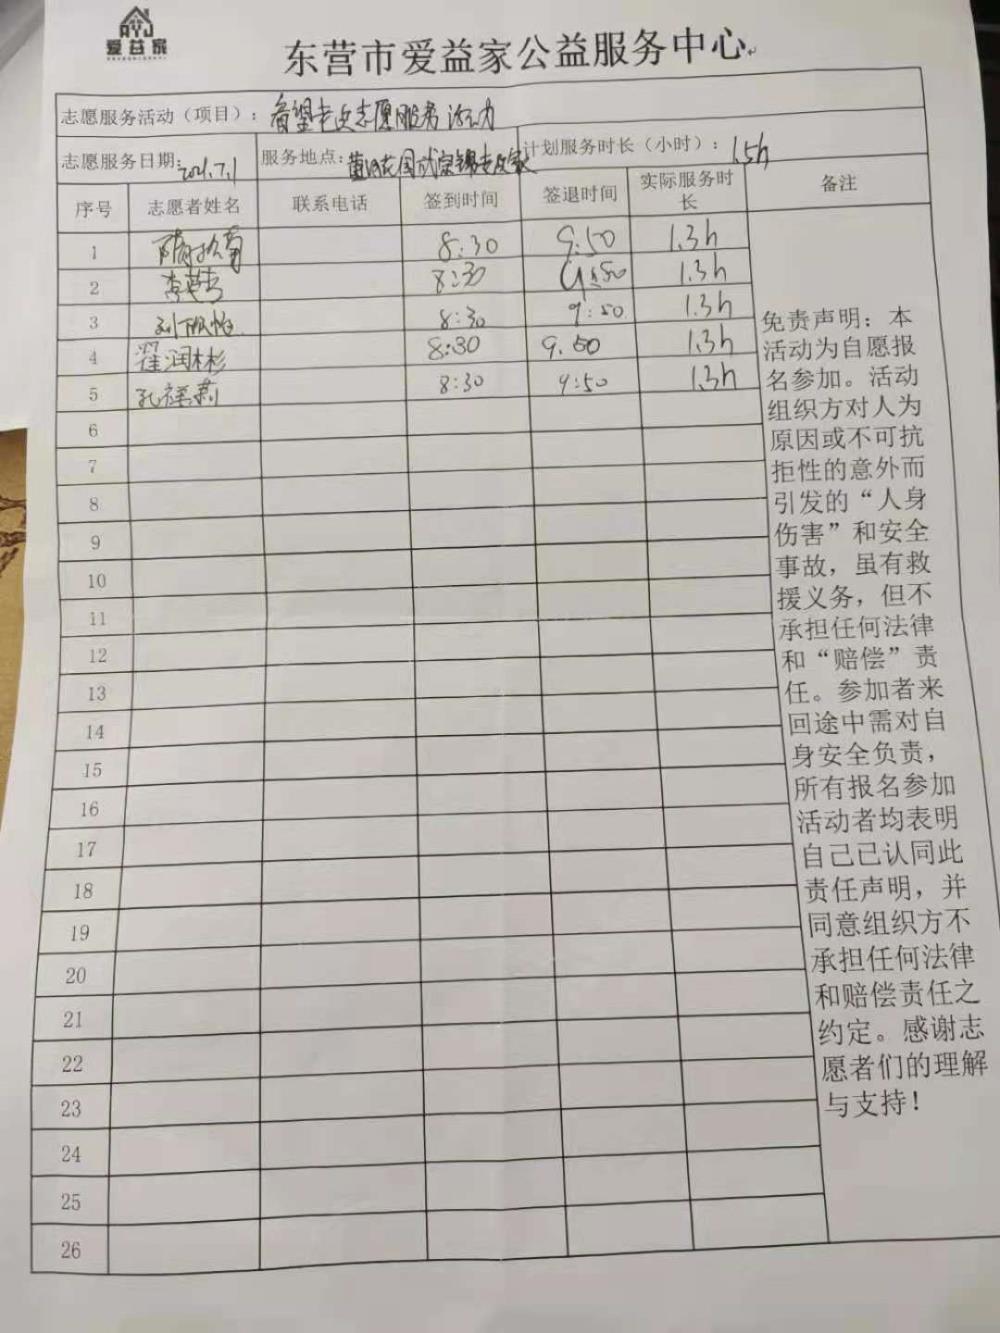 爱益家
东营市爱益家公益服务中心
志愿服务活动（项目）：看望老党员志愿服务活动
志愿服务日期：2021.7.1 服务地点： 计划服务时长（小时）：1.5h
序号 志愿者姓名 联系电话 签到时间 签退时间 实际服务时长 备注
1 8:30 9:50 1.3h
2 8:30 9:50 1.3h
3 8:30 9:50 1.3h
4 翟润彬 8:30 9.50 1.3h
5 8:30 9:50 1.3h
6
7
8
9
10
11
12
13
14
15
16
17
18
19
20
21
22
23
24
25
26
免责声明：本
活动为自愿报
名参加。活动
组织方对人为
原因或不可抗
拒性的意外而
引发的“人身
伤害”和安全
事故，虽有救
援义务，但不
承担任何法律
和“赔偿”责
任。参加者来
回途中需对自
身安全负责，
所有报名参加
活动者均表明
自己已认同此
责任声明，并
同意组织方不
承担任何法律
和赔偿责任之
约定。感谢志
愿者们的理解
与支持！